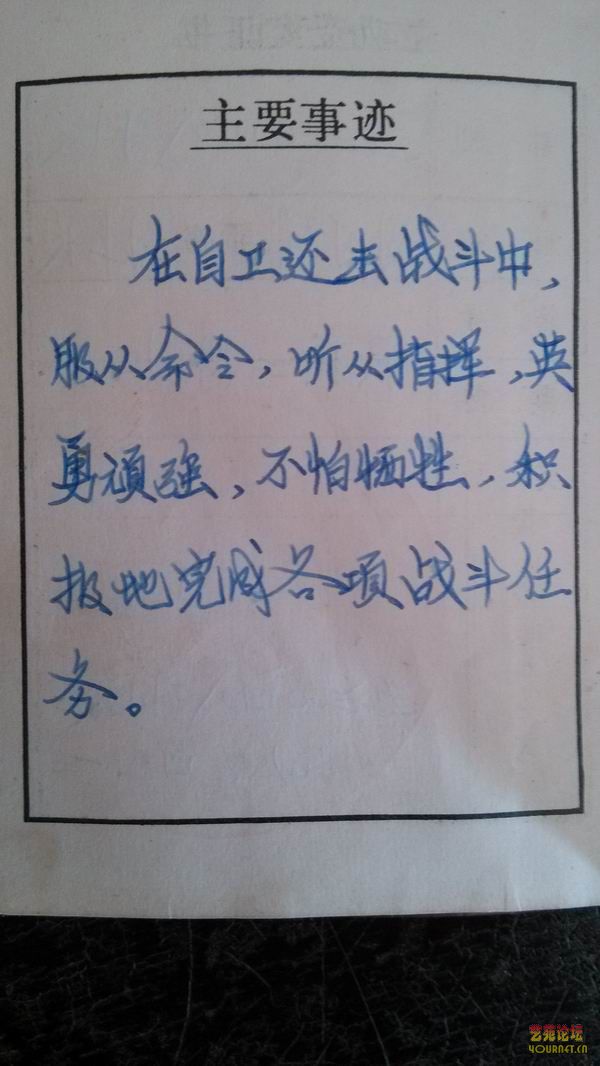 主要事迹
在自卫还击战斗中，
服从命令，听从指挥，英
勇顽强，不怕牺牲，积
极地完成各项战斗任
务。
艺苑论坛
YOURNET.CN